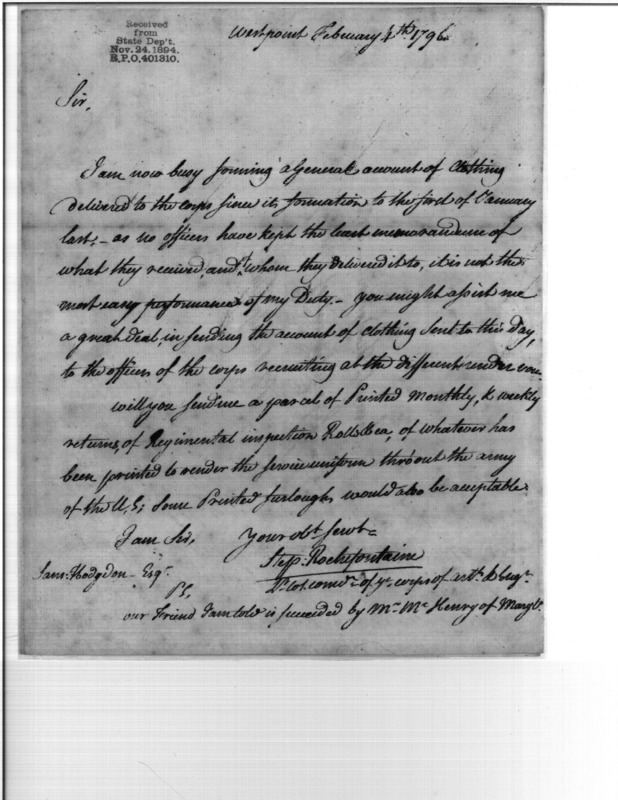 Received
from
State Dep't.
Nov. 24. 1894.
R.P.O. 401310.
Westpoint February 4th 1796
Sir,
I am now busy forming a General account of Clothing
delivered to the corps since its formation to the first of January
last; - as no officers have kept the least memorandum of
what they received, and whom they delivered it to, it is not the
most easy performance of my Duty - you might assist me
a great deal, in sending the account of clothing sent to this day,
to the officers of the corps recruiting at the different rendezvous.
will you send me a parcel of Printed Monthly, & weekly
returns, of Regimental inspection Rolls &ca, of whatever has
been printed to render the service uniform thro'out the army
of the U.S; Some Printed furloughs would also be acceptable
I am Sir, Your obt Servt
Step: Rochefontaine
Lt Col. comdt of ye corps of artts & Engrs
Saml: Hodgdon Esqr
PS,
our Friend I am told is succeeded by Mr Mc Henry of Maryld.